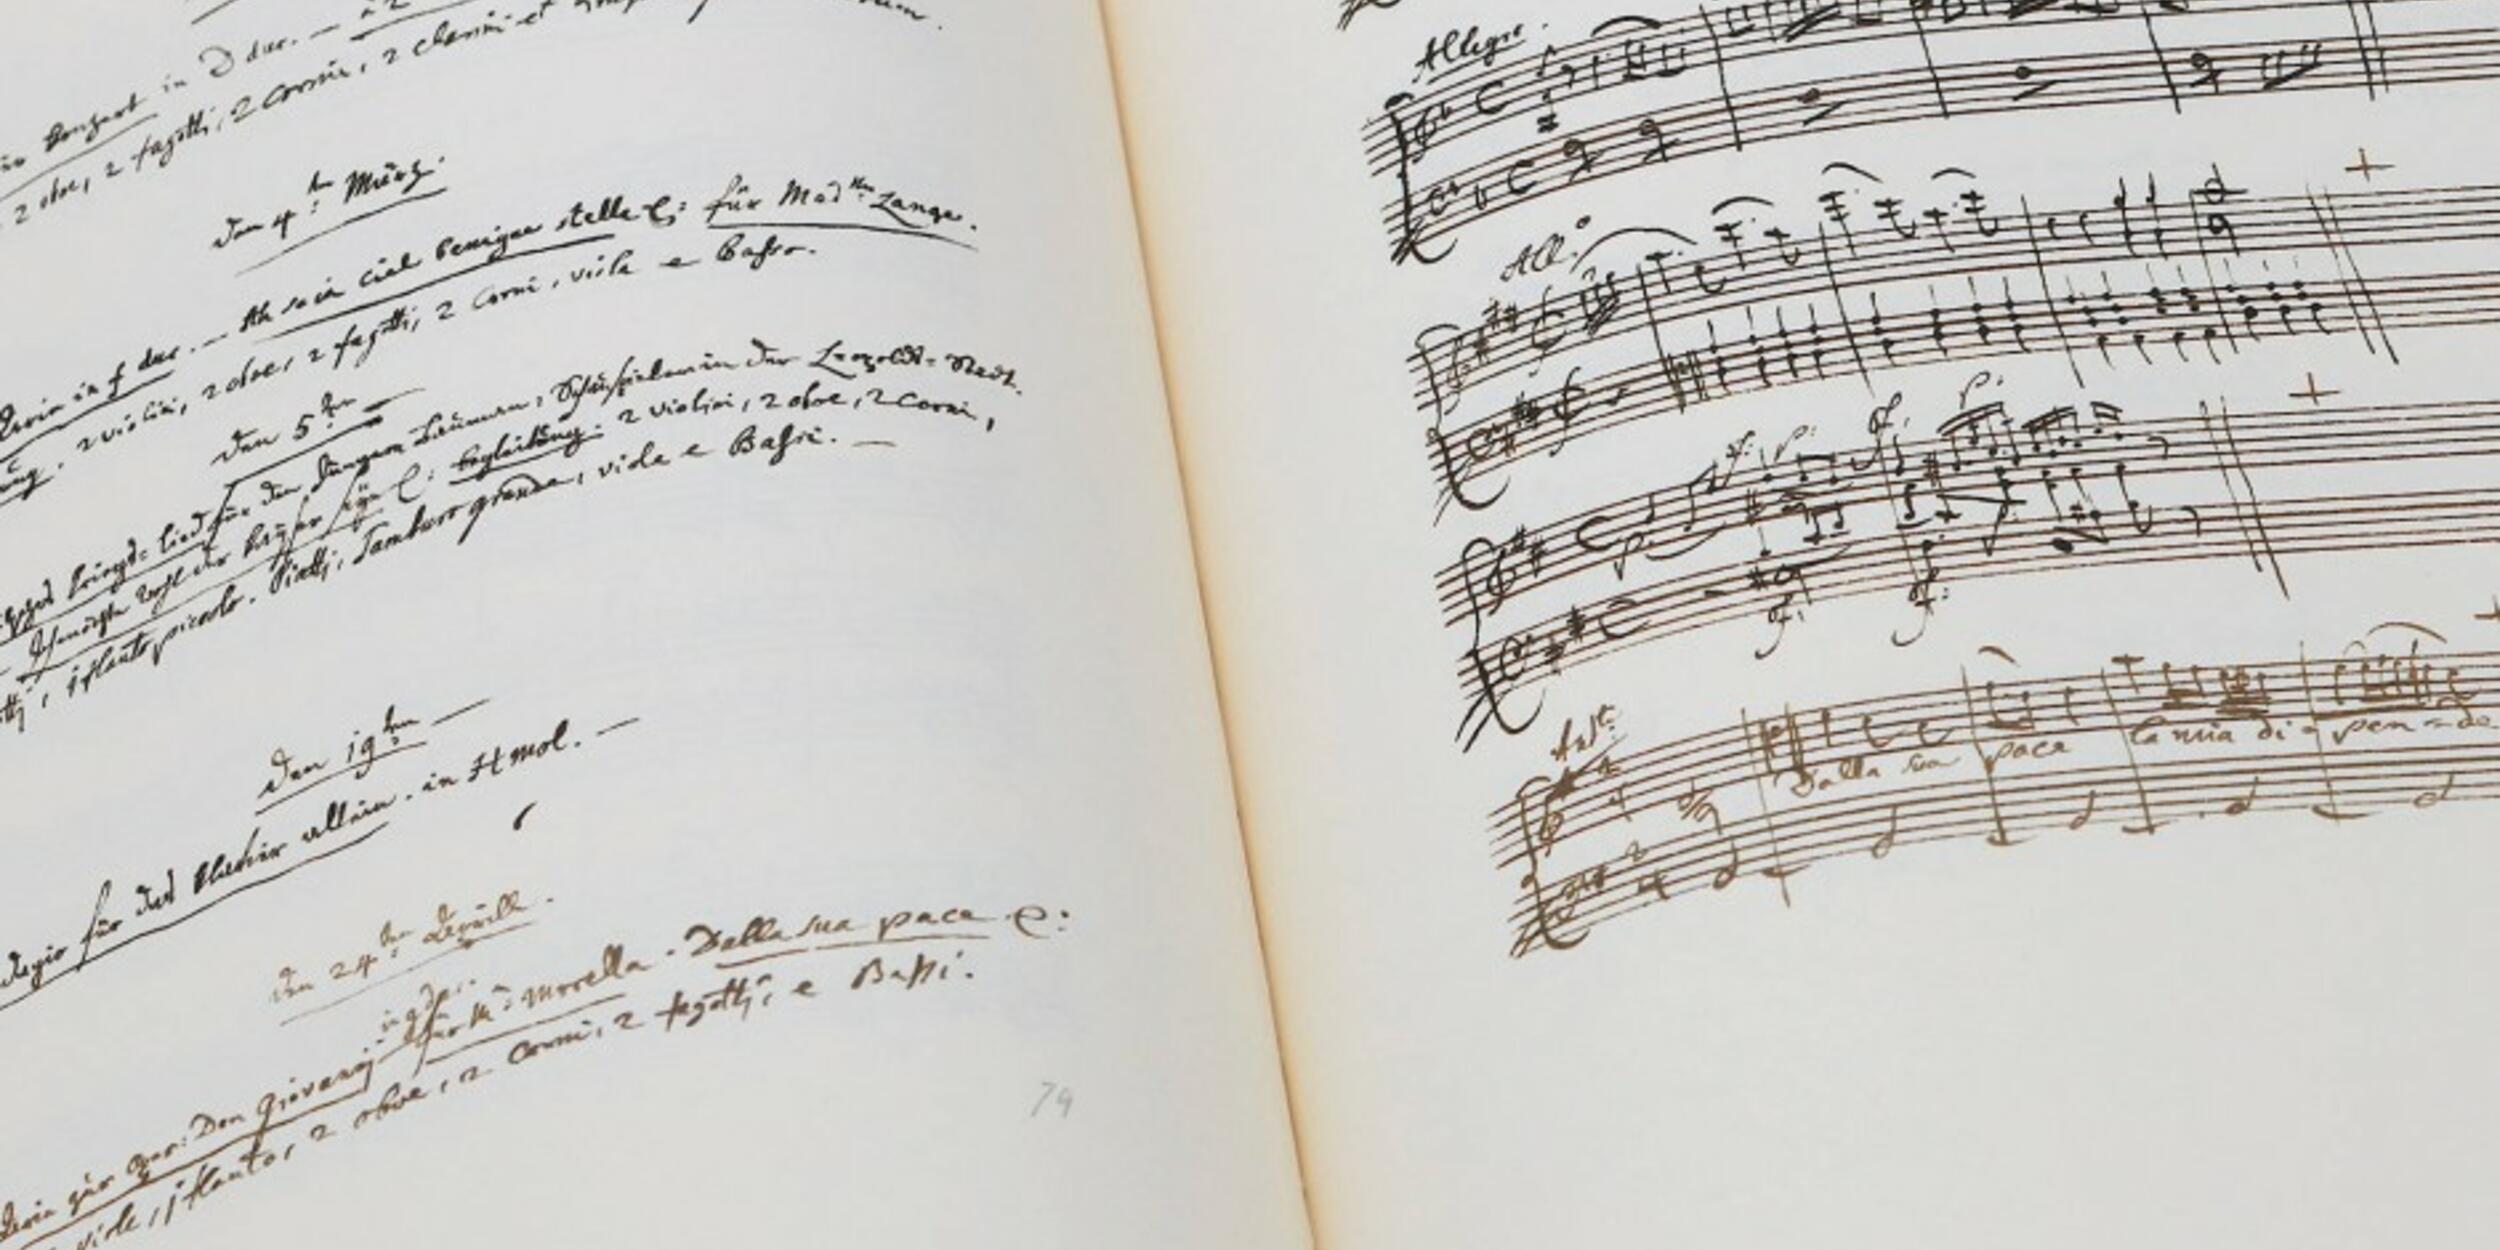 in D dur. — à 2
2 oboe, 2 fagotti, 2 Corni, 2 clarini et
den 4:ten März.
Aria in f dur. — Ah se in ciel benigne stelle etc: für Mad:me Lange.
2 violini, 2 oboe, 2 fagotti, 2 Corni, viola e Basso.
den 5:ten —
kriegs=lied für den Jungen Baumann, Schauspieler in der Leopoldt=Stadt.
der kayser seyn etc: begleitung. 2 violini, 2 oboe, 2 Corni,
1 flauto piccolo. Piatti, Tamburo grande, viola e Bassi. —
den 19:ten —
adagio für das klavier allein. in H mol. —
den 24:ten Aprill.
in g dur.
Aria zur oper: Don Giovanni für M:r Morella. Dalla sua pace etc:
viole, 1 flauto, 2 oboe, 2 Corni, 2 fagotti, e Bassi.
79
Allegro.
All:o
p
f: p: sf: p:
sf: sf:
And:te
Dalla sua pace la mia di=pen=de